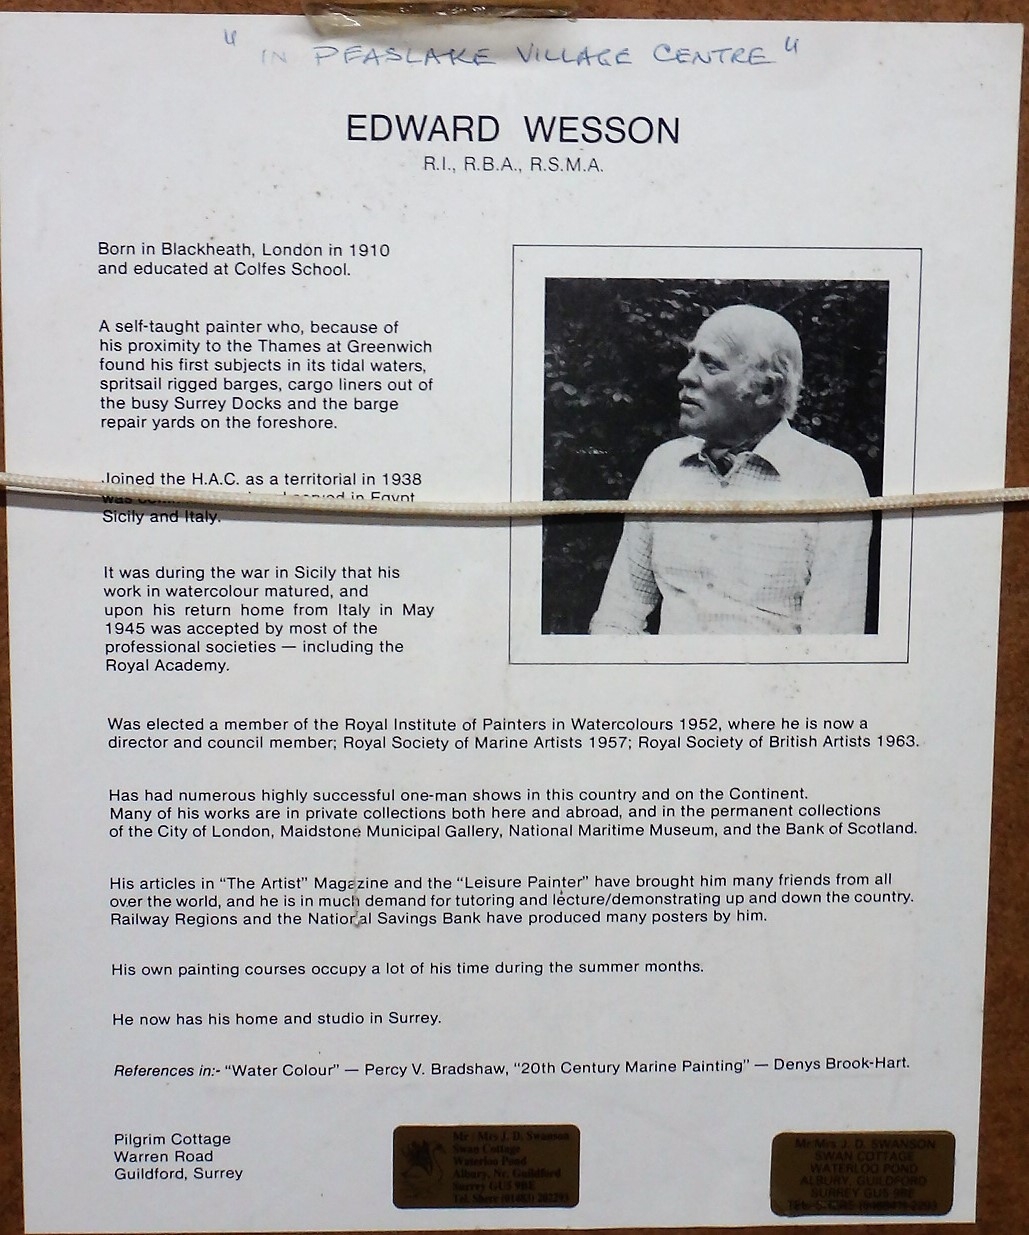 "IN PEASLAKE VILLAGE CENTRE"
EDWARD WESSON
R.I., R.B.A., R.S.M.A.
Born in Blackheath, London in 1910
and educated at Colfes School.
A self-taught painter who, because of
his proximity to the Thames at Greenwich
found his first subjects in its tidal waters,
spritsail rigged barges, cargo liners out of
the busy Surrey Docks and the barge
repair yards on the foreshore.
Joined the H.A.C. as a territorial in 1938
was served in Egypt
Sicily and Italy.
It was during the war in Sicily that his
work in watercolour matured, and
upon his return home from Italy in May
1945 was accepted by most of the
professional societies — including the
Royal Academy.
Was elected a member of the Royal Institute of Painters in Watercolours 1952, where he is now a
director and council member; Royal Society of Marine Artists 1957; Royal Society of British Artists 1963.
Has had numerous highly successful one-man shows in this country and on the Continent.
Many of his works are in private collections both here and abroad, and in the permanent collections
of the City of London, Maidstone Municipal Gallery, National Maritime Museum, and the Bank of Scotland.
His articles in "The Artist" Magazine and the "Leisure Painter" have brought him many friends from all
over the world, and he is in much demand for tutoring and lecture/demonstrating up and down the country.
Railway Regions and the National Savings Bank have produced many posters by him.
His own painting courses occupy a lot of his time during the summer months.
He now has his home and studio in Surrey.
References in:- "Water Colour" — Percy V. Bradshaw, "20th Century Marine Painting" — Denys Brook-Hart.
Pilgrim Cottage
Warren Road
Guildford, Surrey
Mr / Mrs J. D. Swanson
Swan Cottage
Waterloo Pond
Albury, Nr. Guildford
Surrey GU5 9BE
Tel. Shere
Mr/Mrs J. D. SWANSON
SWAN COTTAGE
WATERLOO POND
ALBURY, GUILDFORD
SURREY GU5 9BE